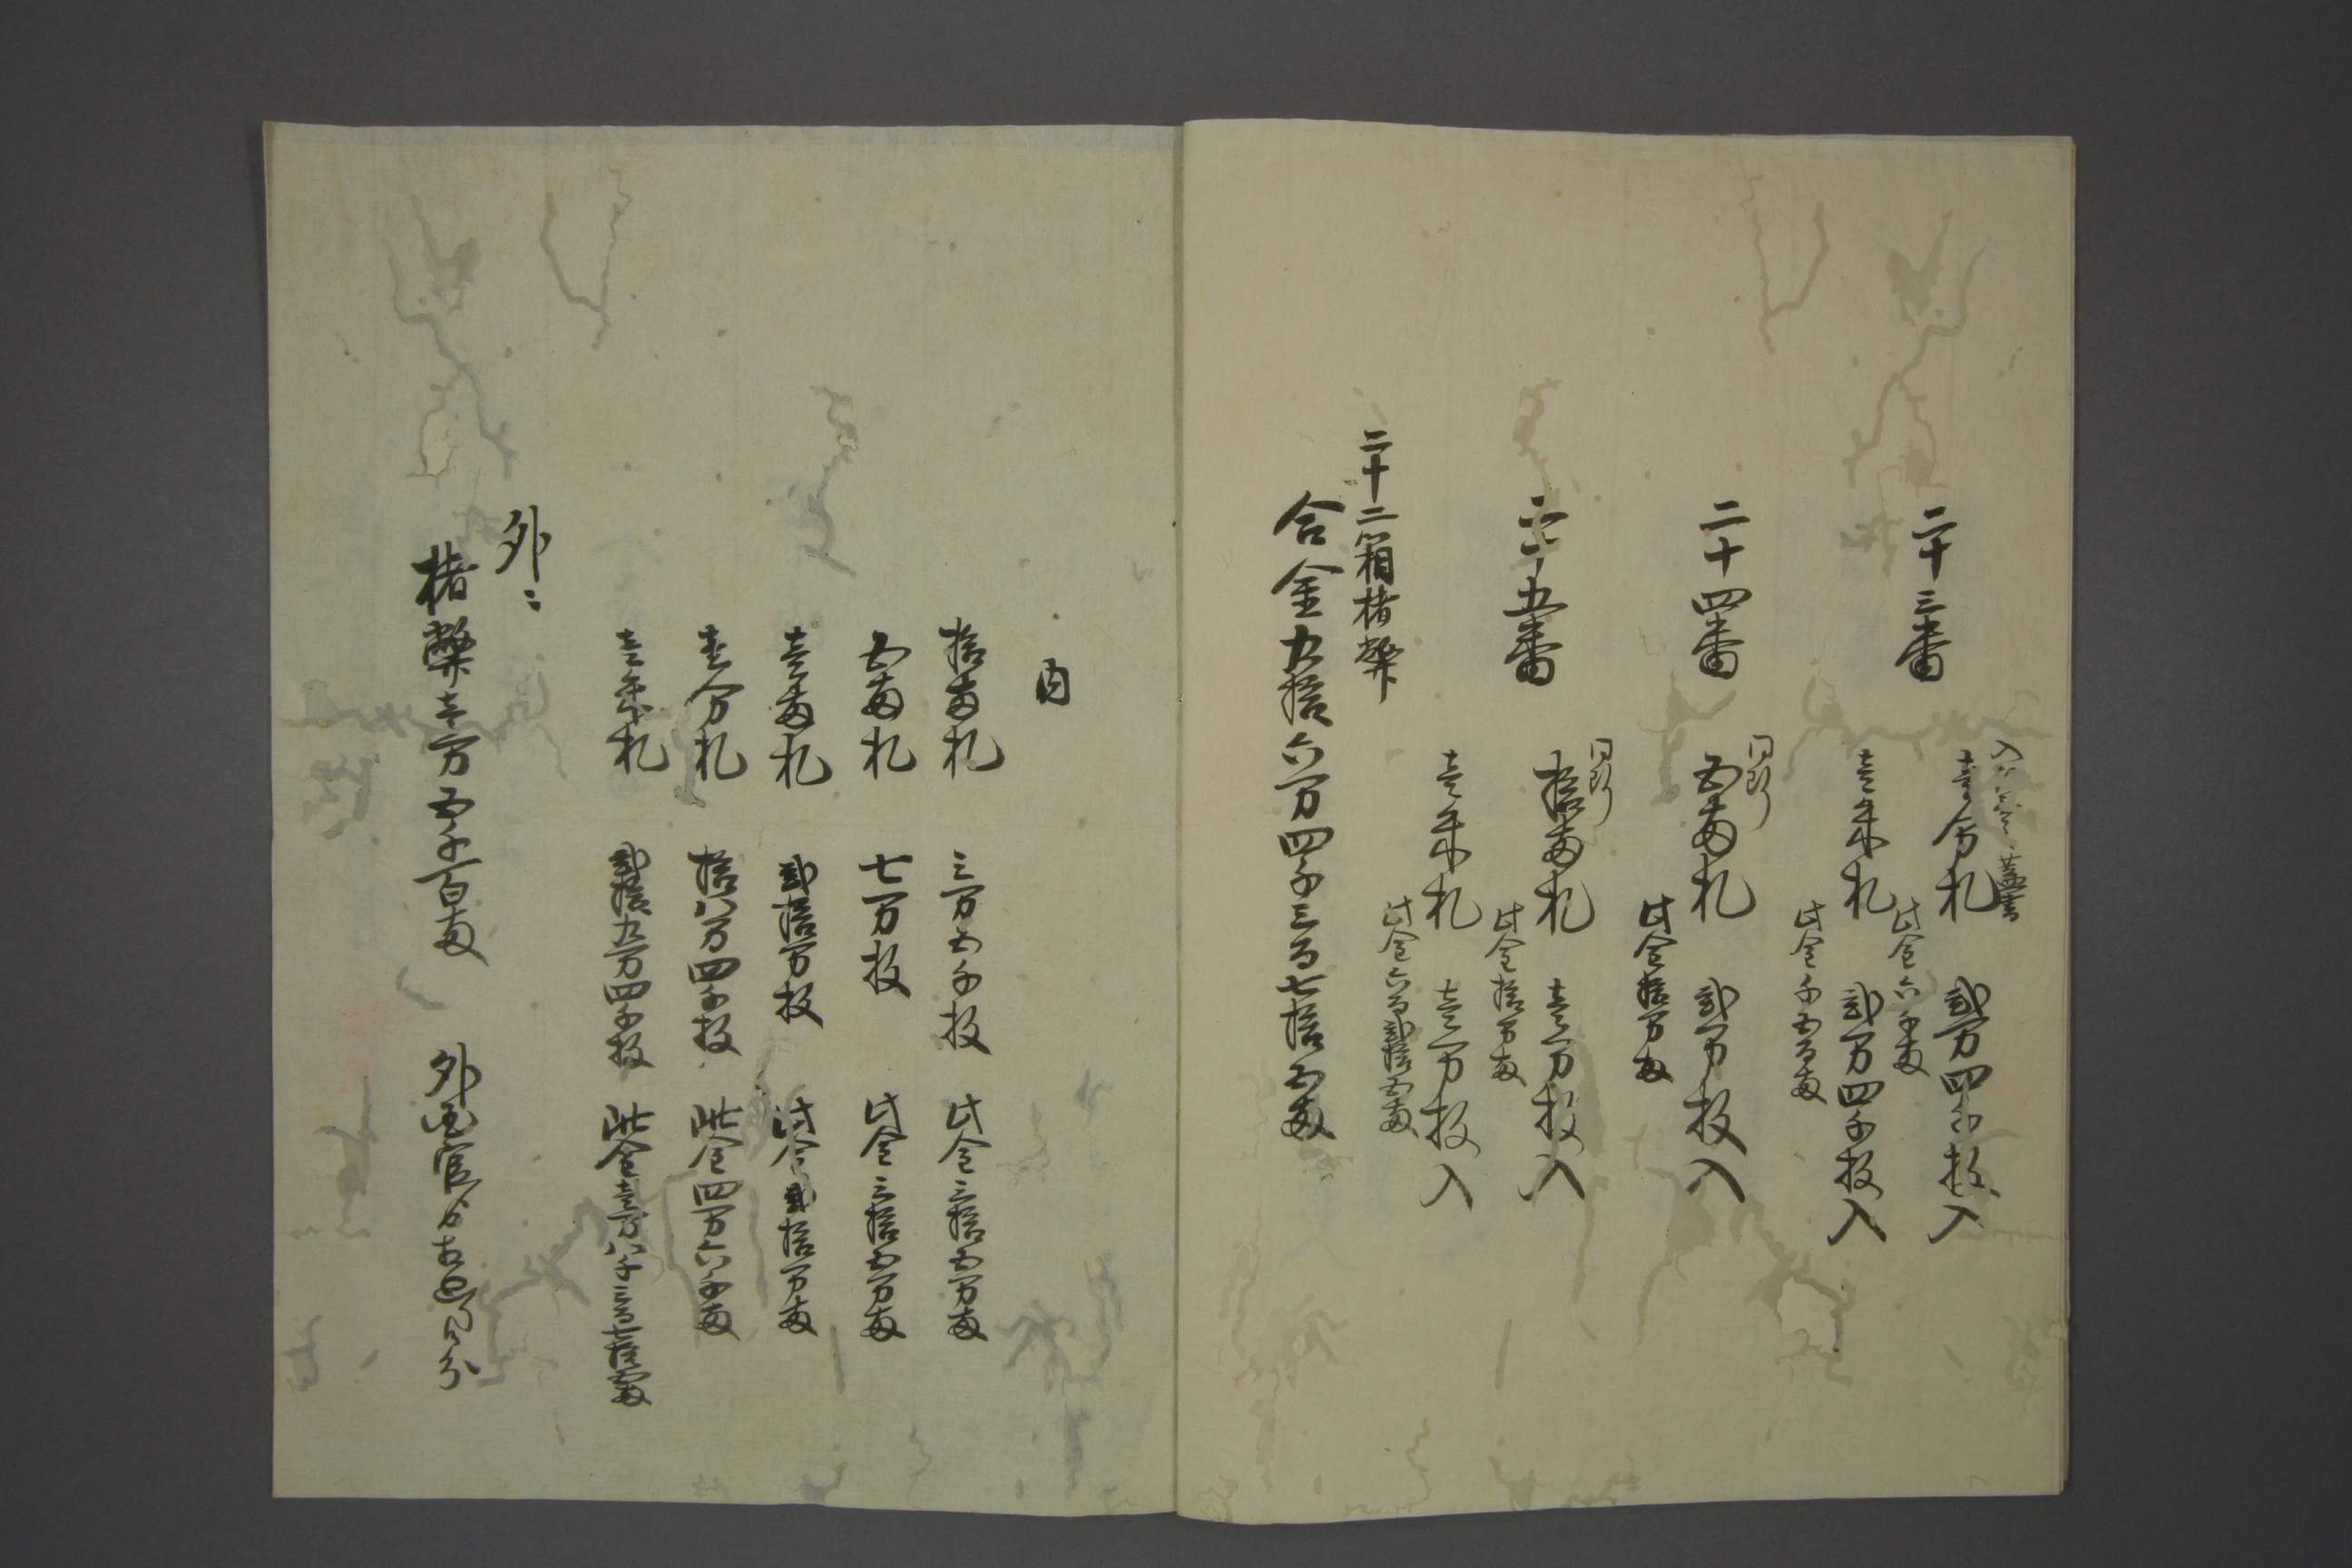 二十三番
蓋書
壱分札　弐万四千枚入
此金六千両
壱朱札　弐万四千枚入
此金千五百両
二十四番
同断
五両札　弐万枚入
此金拾万両
二十五番
同断
拾両札　壱万枚入
此金拾万両
壱朱札　壱万枚入
此金六百弐拾五両
二十二箱楮幣
合金九拾六万四千三百七拾五両
内
拾両札　三万五千枚　此金三拾五万両
五両札　七万枚　此金三拾五万両
壱両札　弐拾万枚　此金弐拾万両
壱分札　拾八万四千枚　此金四万六千両
壱朱札　弐拾九万四千枚　此金壱万八千三百七拾五両
外ニ
楮幣壱万五千百両　外国官ゟ